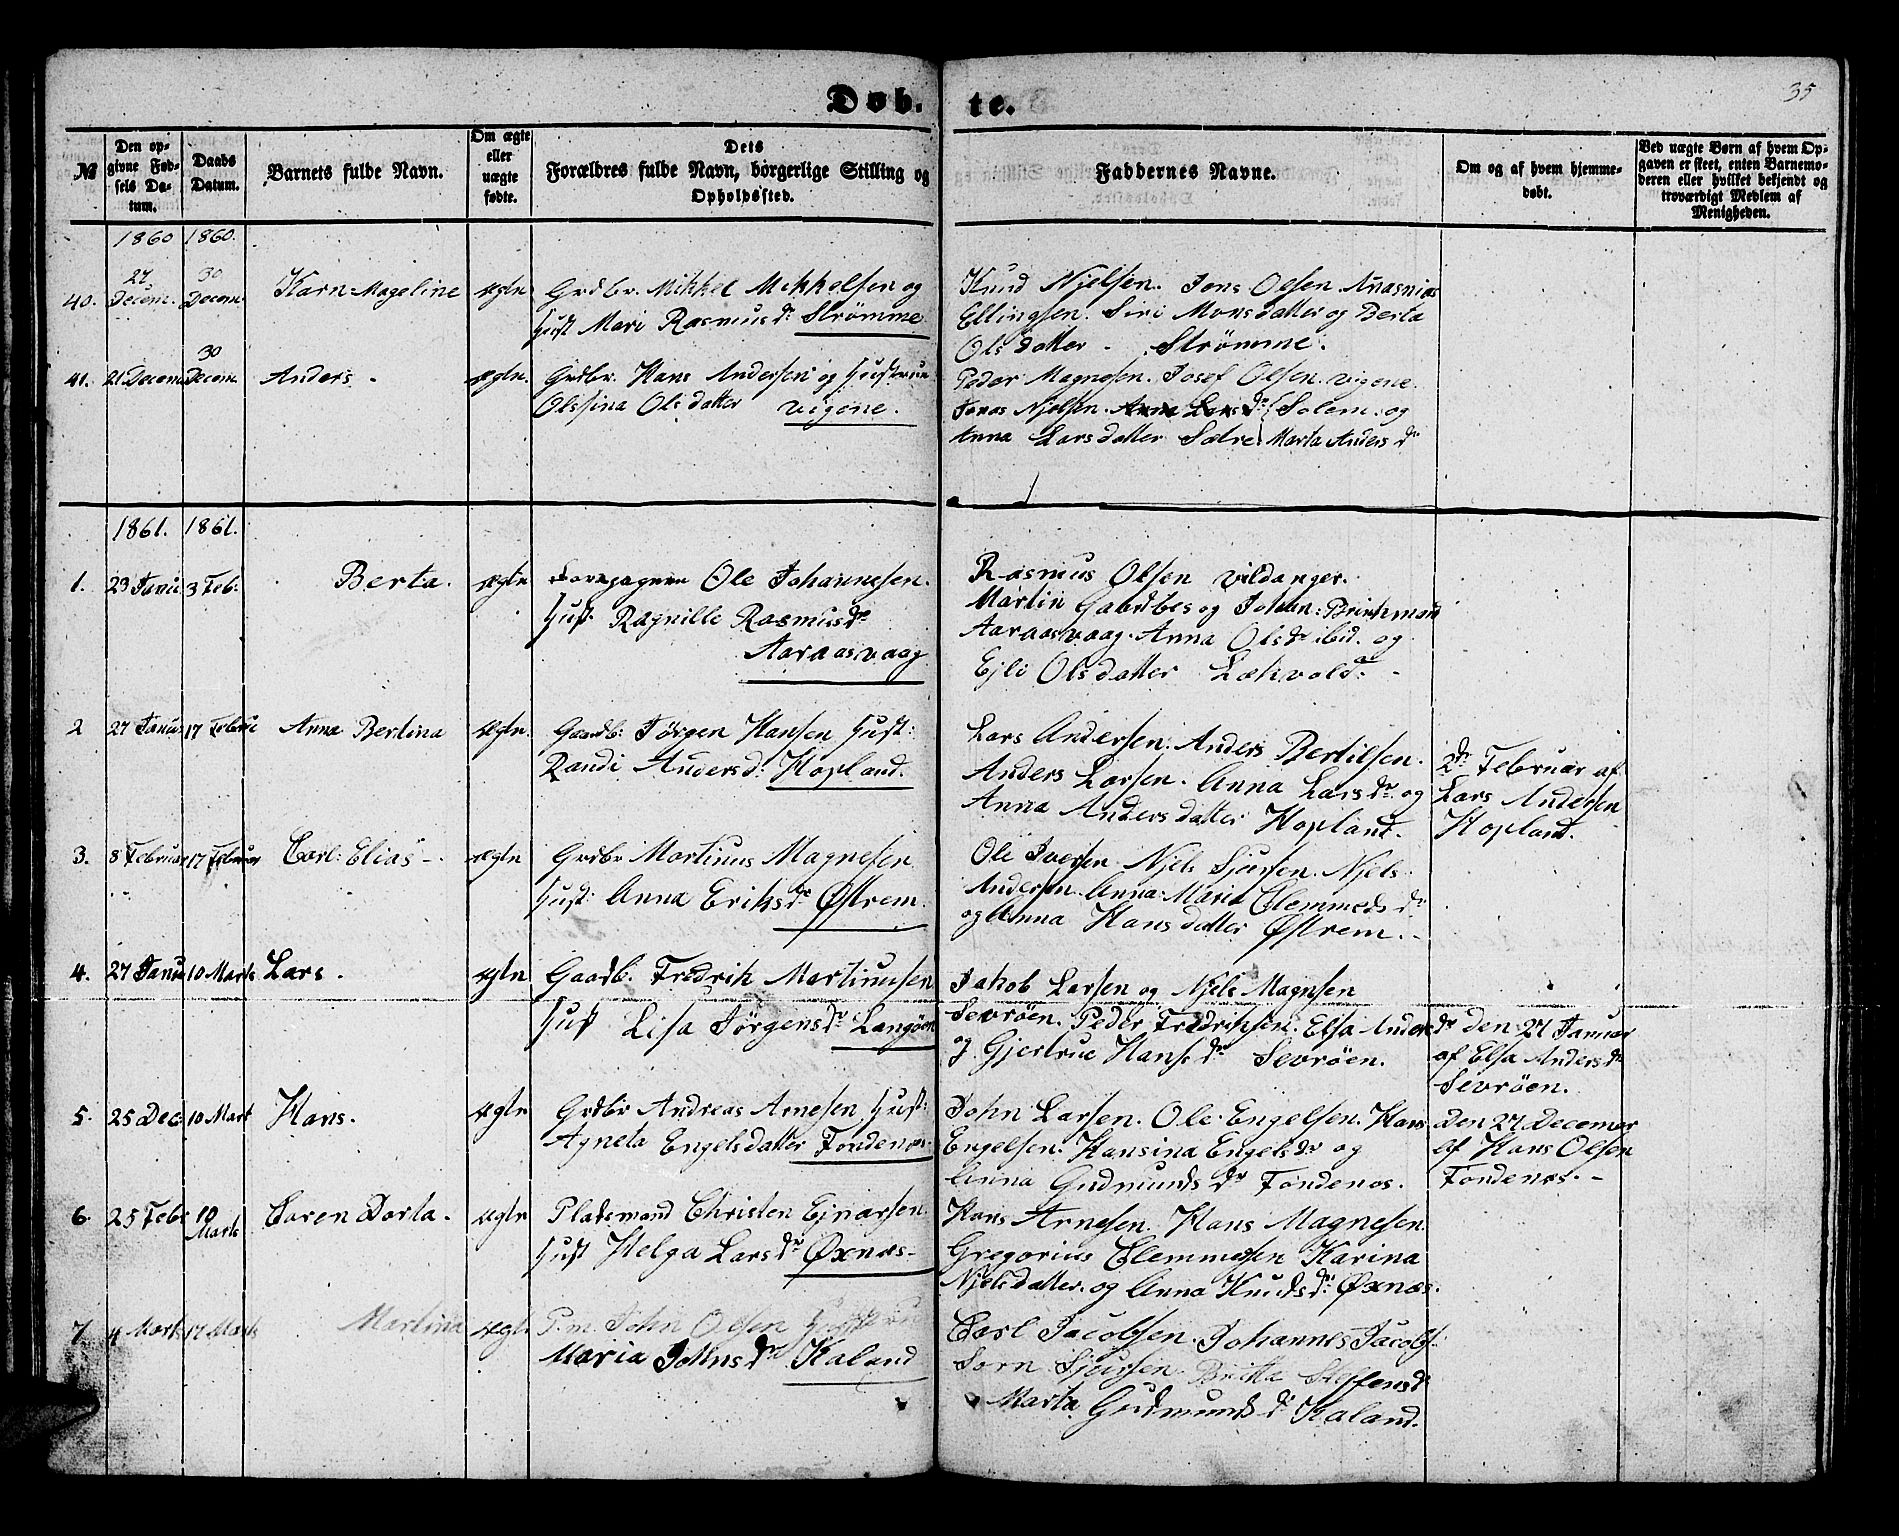 Døb. te. 35
№
Den op-
givne Fød-
sels Da-
tum.
Daabs
Datum.
Barnets fulde Navn.
Om ægte
eller
uægte
fødte.
Dets
Forældres fulde Navn, borgerlige Stilling og
Opholdssted.
Faddernes Navne.
Om og af hvem hjemme-
døbt.
Ved uægte Børn af hvem Op-
gaven er skeet, enten Barnemo-
deren eller hvilket bekjendt og
troværdigt Medlem af
Menigheden.
1860 1860.
40. 27 Decem. 30 Decem. Karn-Mageline ægte
Grdbr. Mikkel Mikkelsen og
Hust Mari Rasmusdr Strømme
Knud Njelsen. Jens Olsen Ananias
Ellingsen. Siri Monsdatter og Berta
Olsdatter - Strømme.
41. 21 Decem. 30 Decem. Anders - ægte.
Grdbr. Hans Andersen og Hustrue
Olssina Olsdatter Vigene.
Peder Magnesen. Josef Olsen. Vigene.
Jonas Njelsen. Anna Larsdr Solem. og
Anna Larsdatter Sætre Marta Andersdr
1861. 1861.
1. 23 Janu 3 Feb: Berta. ægte
Ole Johannesen.
Hust. Ragnille Rasmusdr
Aaraasvaag
Rasmus Olsen Vildanger.
Martin Gabrilsen og Johan: Brinkmand
Aaraasvaag. Anna Olsdr ibid. og
Ejli Olsdatter
2 27 Janu: 17 Februe Anna Bertina ægte.
Gaardb: Jørgen Hansen Hust:
Randi Andersd: Hopland.
Lars Andersen. Anders Bertilsen.
Anders Larsen. Anna Larsdr. og
Anna Andersdatter Hopland.
2dn Februar af
Lars Andersen
Hopland.
3. 8 Februar 17 Februar Carl: Elias -. ægte
Grdbr Martinus Magnesen
Hust: Anna Eriksdr Østrem.
Ole Iversen. Njels Sjursen. Njels
Andersen. Anna: Maria Clemmedsdr
og Anna Hansdatter Østrem. -
4. 27 Janu 10 Marts Lars. ægte
Gaardb. Fredrik Martinusen
Hust Lisa Jørgensdr Langøen
Jakob Larsen og Njels Magnsen
Sevrøen. Peder Fredriksen. Elsa Anders
og Gjertrue Hansdr Sevrøen.
dr den 27 Januar
af Elsa Andersdr
Sevrøen.
5. 25 Dec: 10 Mart Hans. ægte
Grdbr Andreas Arnesen Hust:
Agneta Engelsdatter Tondenæs.
John Larsen. Ole: Engelsen. Hans
Engelsen: Hansina Engelsdr og
Anna Gudmundsdr Tondenes.
Den 27. Decemer
af Hans Olsen
Tondenæs. -
6. 25 Febr 10 Marts Caren Dorta. ægte
Pladsmand Christen Ejnarsen.
Hust Helga Larsdr Øxnæs -
Hans Arnesen. Hans Magnesen
Gregorius Clemmesen Karina
Njelsdatter. og Anna Knudsdr Øxnæs.
7 4 Marts 17 Marts Martina ægte
P.m. John Olsen Hustru
Maria Johnsdr Kaland
Carl Jacobsen. Johannes Jacobs:
Sorn Sjursen Britta Steffensd
Marta Gudmundsdr Kaland.